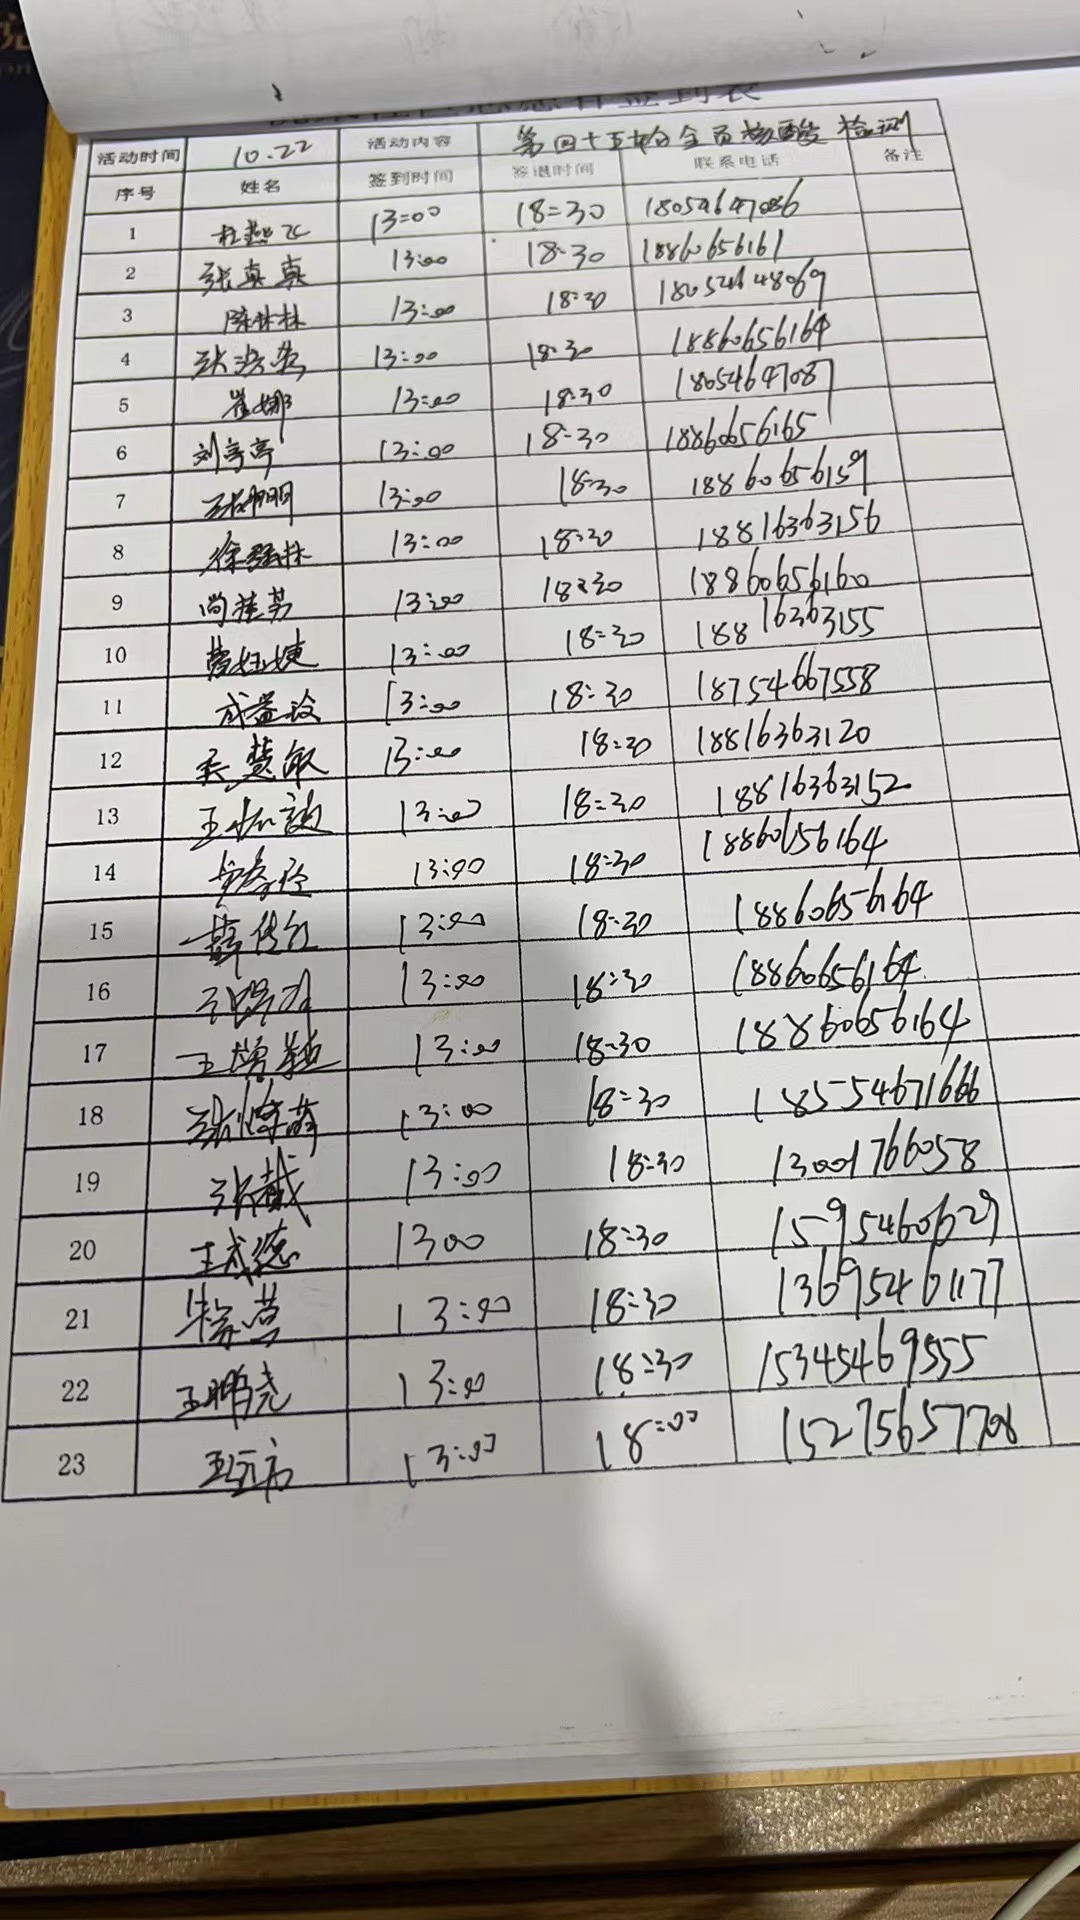 活动时间 10.22 活动内容 第四十五轮全员核酸检测
序号 姓名 签到时间 签退时间 联系电话 备注
1 杜燕飞 13:00 18:30 18054647086
2 张真真 13:00 18:30 18860656161
3 陈林林 13:00 18:30 18054648069
4 13:00 18:30 18860656164
5 崔娜 13:00 18:30 18054647087
6 刘亭亭 13:00 18:30 18860656165
7 张明明 13:00 18:30 18860656159
8 徐强林 13:00 18:30 18816363156
9 尚桂芳 13:00 18:30 18860656160
10 13:00 18:30 18816363155
11 成益玲 13:00 18:30 18754667558
12 慧敏 13:00 18:30 18816363120
13 13:00 18:30 18816363152
14 13:00 18:30
15 薛传红 13:00 18:30 18860656164
16 13:00 18:30 18860656164
17 13:00 18:30 18860656164
18 13:00 18:30 18554671666
19 张截 13:00 18:30 13001766058
20 王成德 1300 18:30 15954606629
21 13:00 18:30 13695461177
22 王鹏尧 13:00 18:30 15345469555
23 13:00 18:00 15275657708